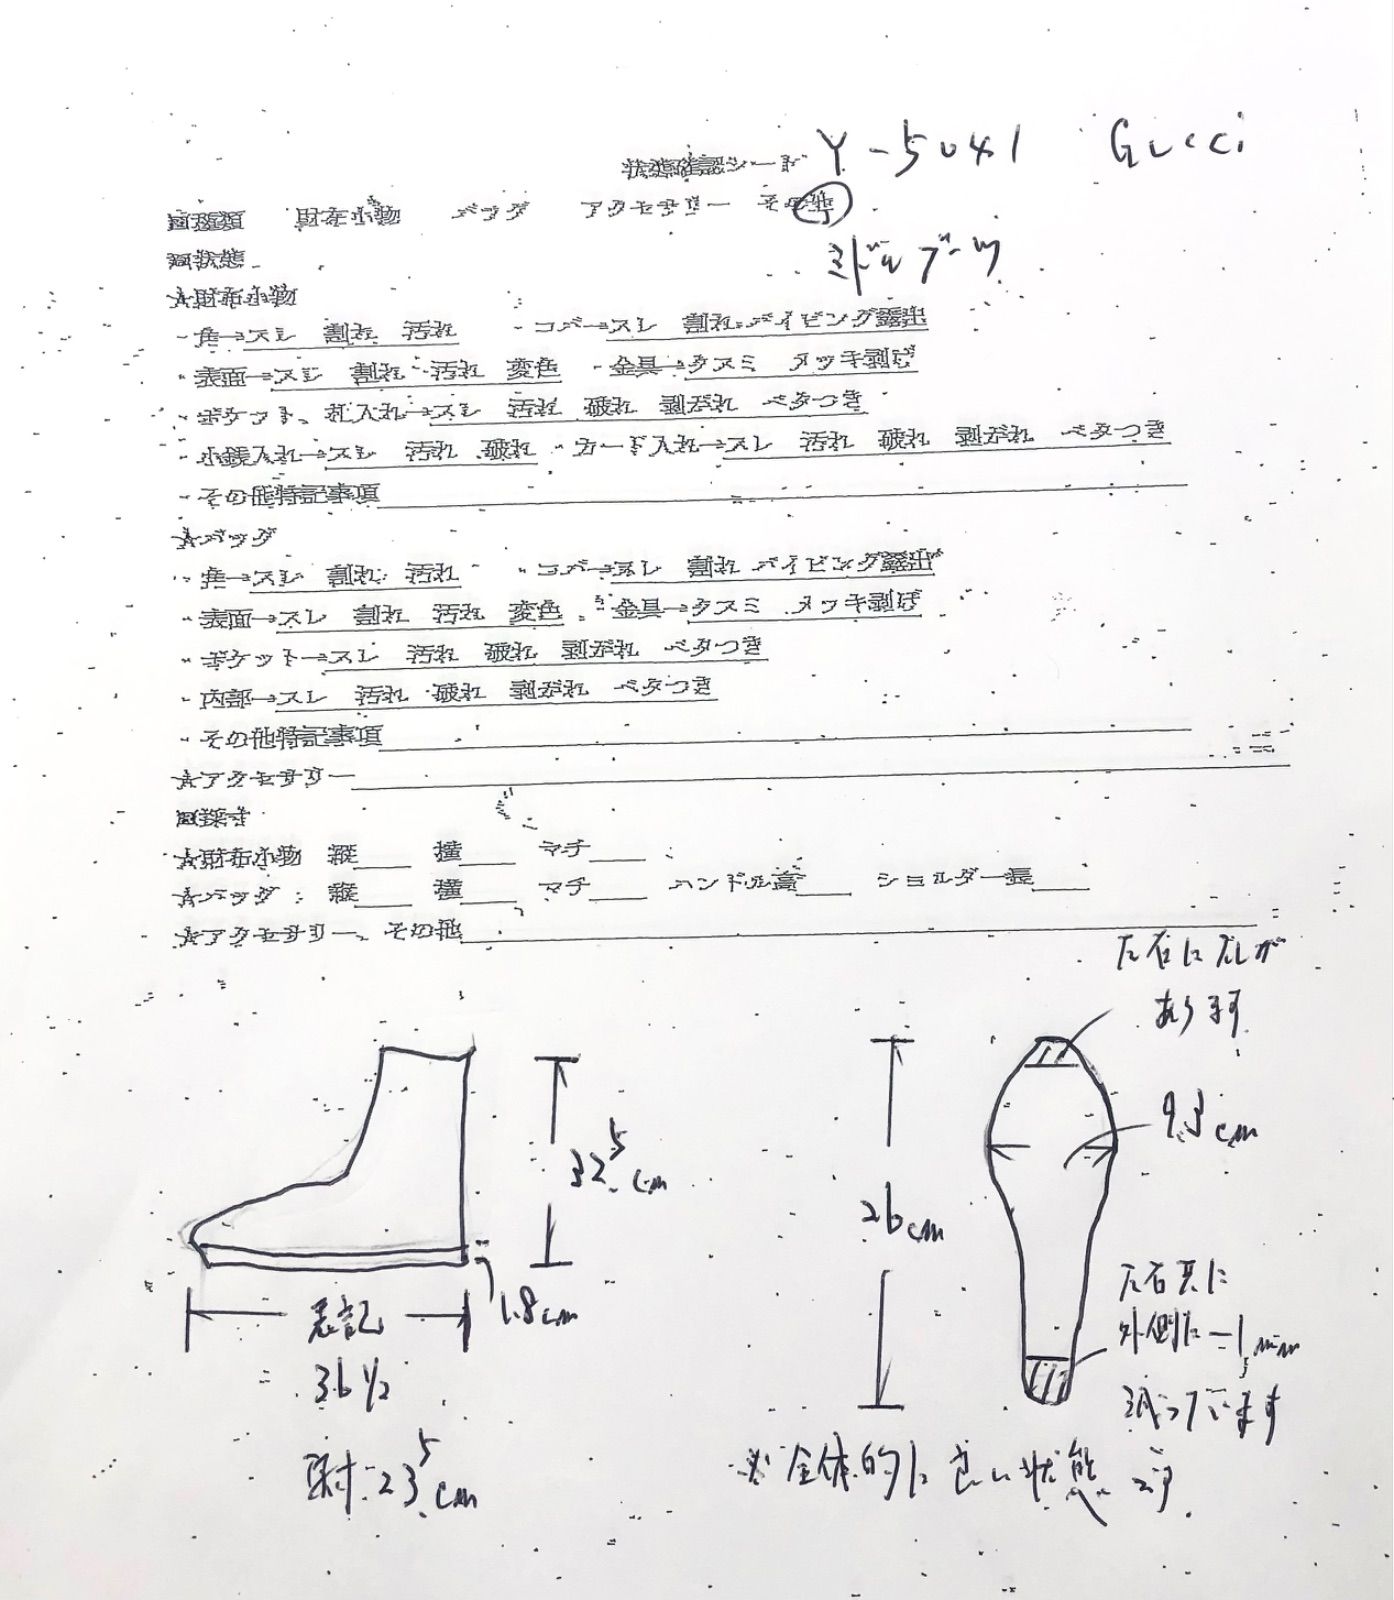 状態確認シート Y-5041 Gucci
□種類 財布小物 バッグ アクセサリー その他
ミドルブーツ
□状態
☆財布小物
・角→スレ 割れ 汚れ ・コバ→スレ 割れ パイピング露出
・表面→スレ 割れ 汚れ 変色 ・金具→クスミ メッキ剥げ
・ポケット、札入れ→スレ 汚れ 破れ 剥がれ ベタつき
・小銭入れ→スレ 汚れ 破れ ・カード入れ→スレ 汚れ 破れ 剥がれ ベタつき
・その他特記事項
☆バッグ
・角→スレ 割れ 汚れ ・コバ→スレ 割れ パイピング露出
・表面→スレ 割れ 汚れ 変色 ・金具→クスミ メッキ剥げ
・ポケット→スレ 汚れ 破れ 剥がれ ベタつき
・内部→スレ 汚れ 破れ 剥がれ ベタつき
・その他特記事項
☆アクセサリー
□採寸
☆財布小物 縦 横 マチ
☆バッグ 縦 横 マチ ハンドル高 ショルダー長
☆アクセサリー、その他
左右に
あります
9.3cm
32.5cm
26cm
1.8cm
表記
36 1/2
実寸 23.5cm
左右共に
外側に -1mm
減っています
※全体的に良い状態です.